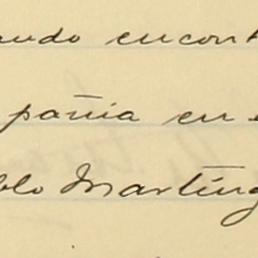 ando encont
pañia en e
blo Martíng